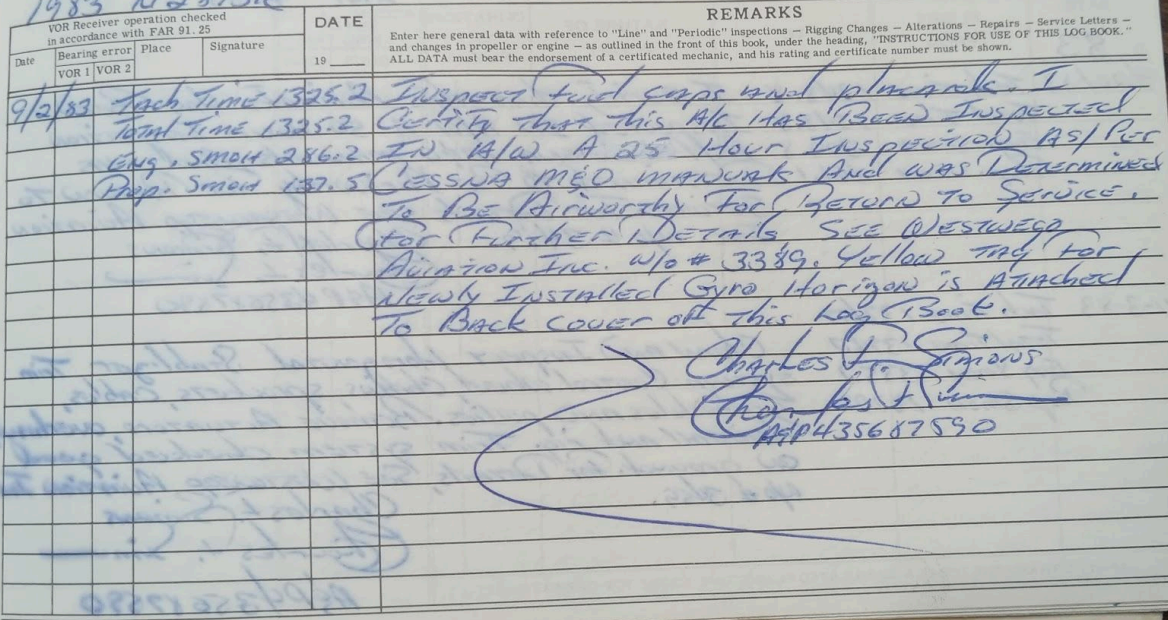 1983
VOR Receiver operation checked
in accordance with FAR 91.25
Date
Bearing error
Place
Signature
VOR 1
VOR 2
DATE
19
REMARKS
Enter here general data with reference to "Line" and "Periodic" inspections — Rigging Changes — Alterations — Repairs — Service Letters —
and changes in propeller or engine — as outlined in the front of this book, under the heading, "INSTRUCTIONS FOR USE OF THIS LOG BOOK."
ALL DATA must bear the endorsement of a certificated mechanic, and his rating and certificate number must be shown.
9/2/83 Tach Time 1325.2 Inspect fuel caps and placards. I
Total Time 1325.2 Certify That this A/c Has Been Inspected
Eng. SMOH 286.2 In A/W A 25 Hour Inspection As/Per
Prop. Smoh 137.5 Cessna M&O manual And was Determined
To Be Airworthy For Return To Service.
For Further Details See Westwego
Aviation Inc. W/o # 3389. Yellow Tag For
Newly Installed Gyro Horizon is Attached
To Back cover of this Log Book.
Charles F. Simons
A&P435687590